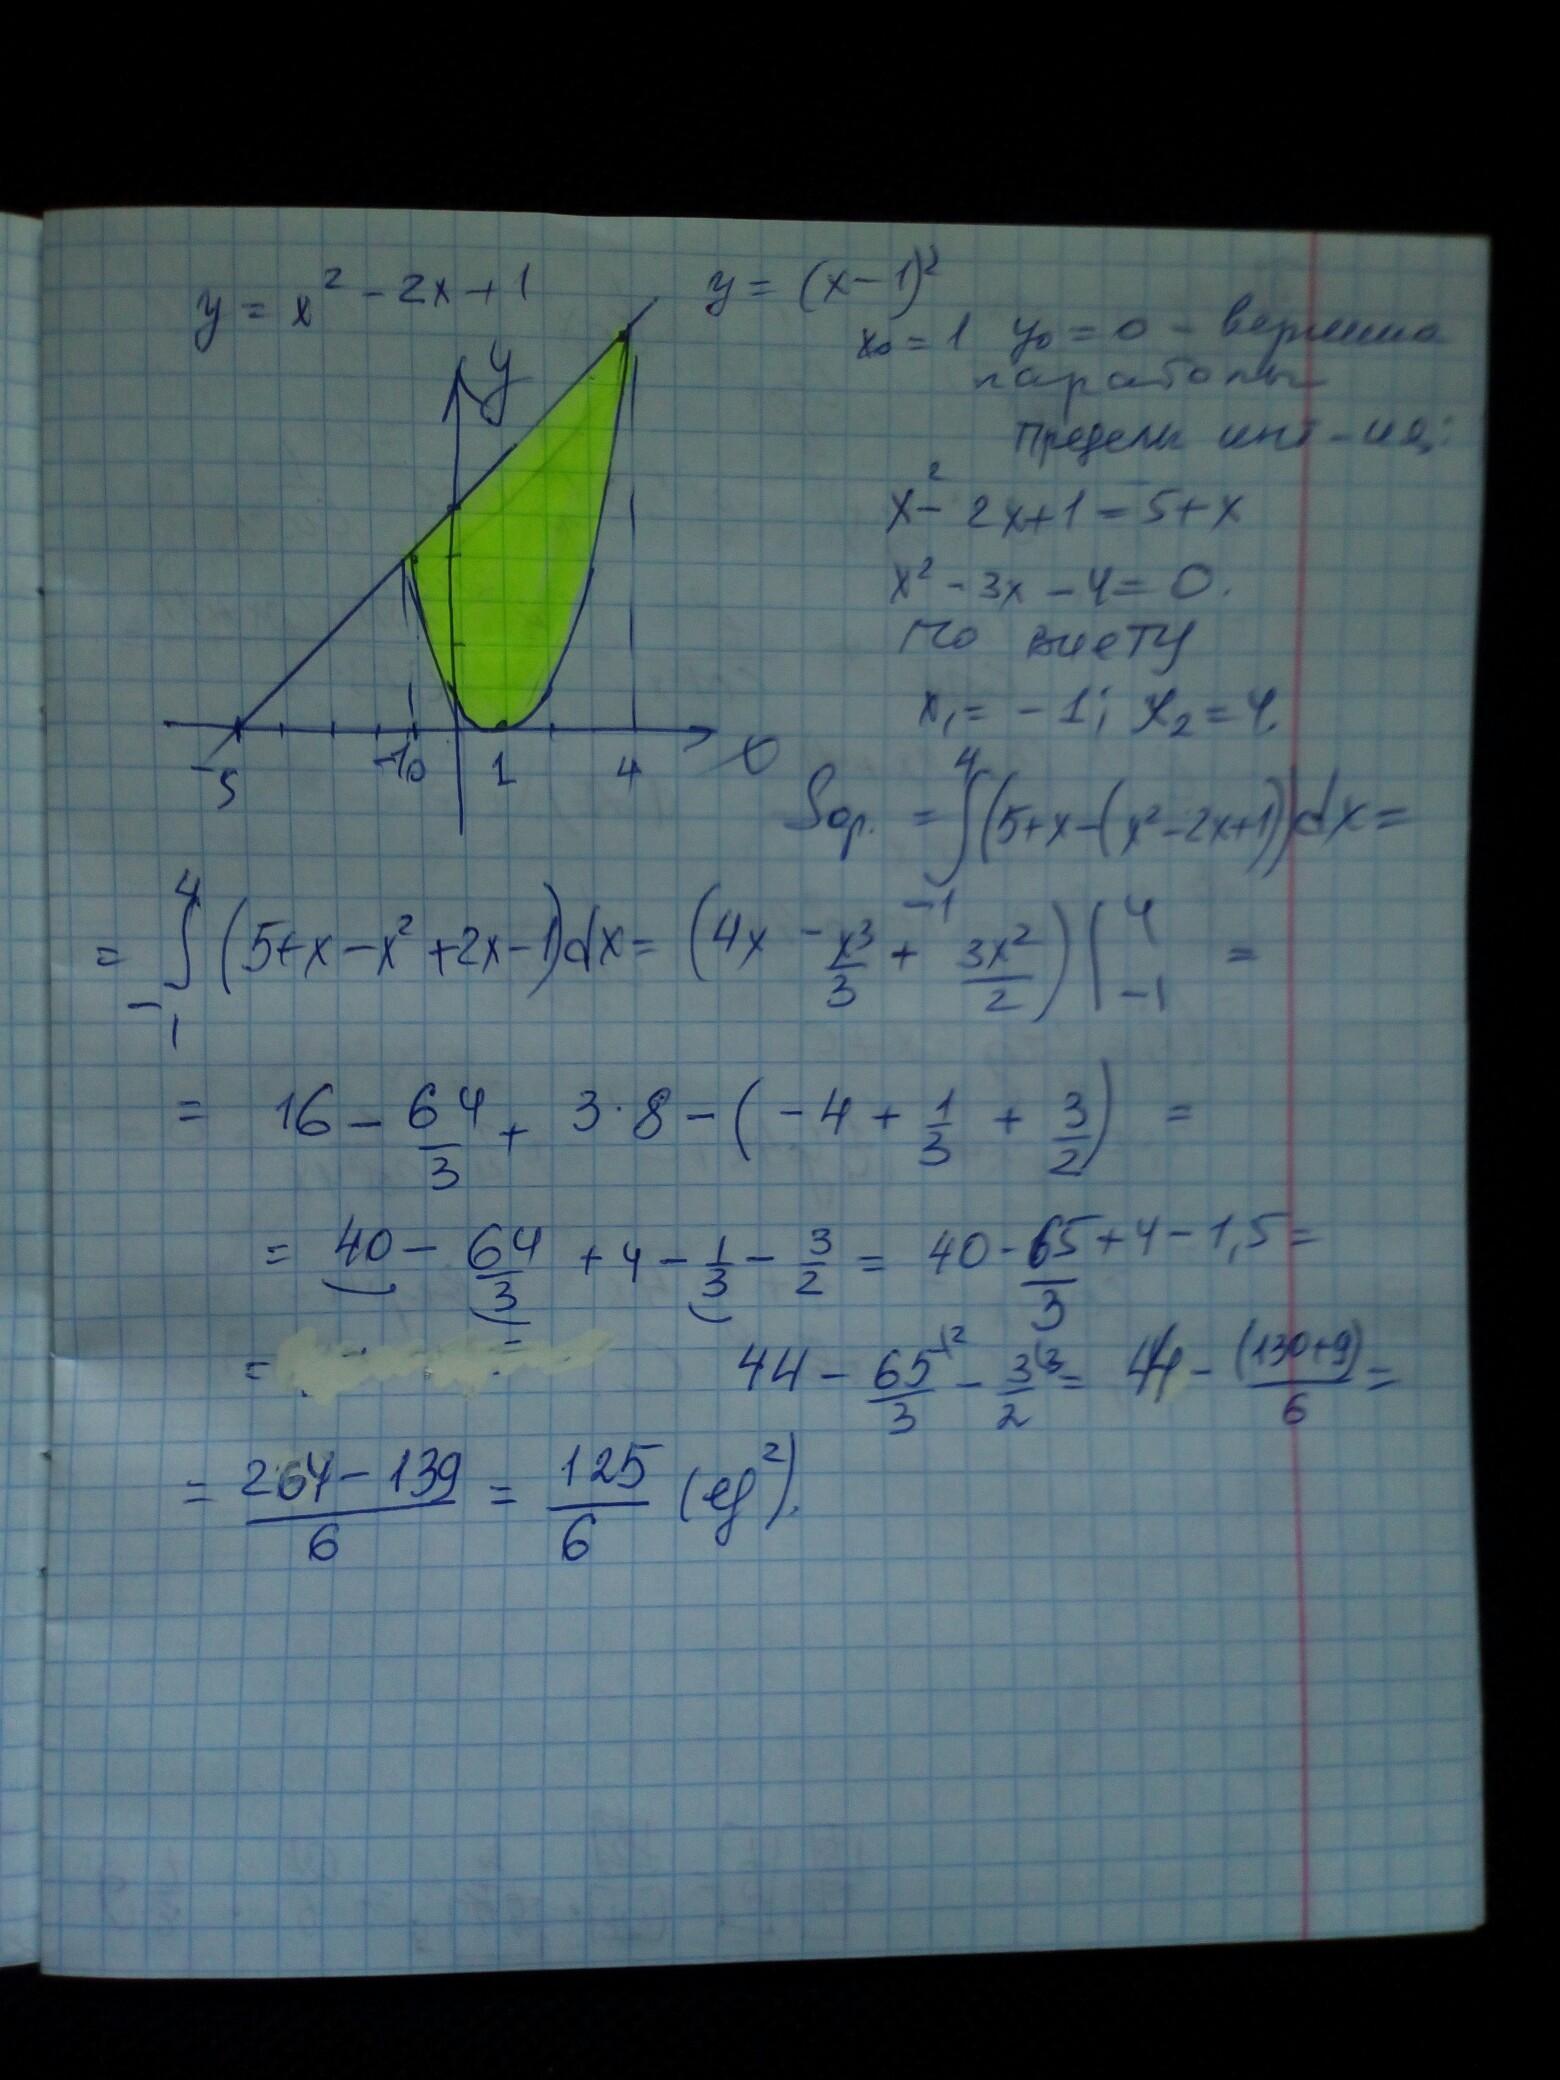 y = x² - 2x + 1
y = (x-1)²
x₀ = 1 y₀ = 0 - вершина
параболы
Пределы инт-ия:
x² - 2x+1 = 5+x
x² - 3x - 4 = 0.
По виету
x₁ = -1; x₂ = 4.
y
-5 -1 0 1 4 x
Sор. = ∫₋₁⁴ (5+x-(x²-2x+1))dx =
= ∫₋₁⁴ (5+x-x²+2x-1)dx = (4x - x³/3 + 3x²/2) |₋₁⁴ =
= 16 - 64/3 + 3·8 - (-4 + 1/3 + 3/2) =
= 40 - 64/3 + 4 - 1/3 - 3/2 = 40 - 65/3 + 4 - 1,5 =
= 44 - 65\2/3 - 3\3/2 = 44 - (130+9)/6 =
= 264-139/6 = 125/6 (ед²).